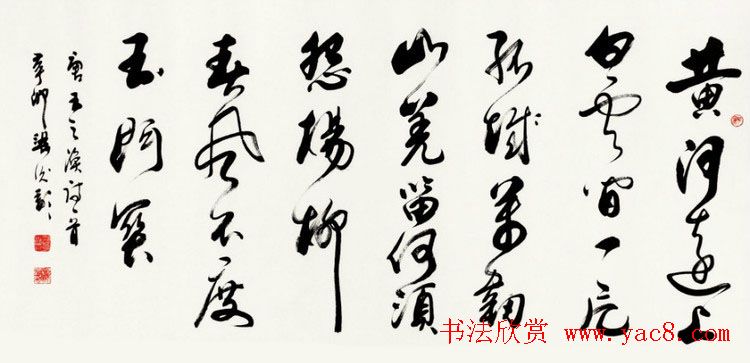 黄河遠上
白雲间一片
孤城萬仞
山羌笛何須
怨楊柳
春風不度
玉门關
唐王之渙詩一首
辛卯
书法欣赏 www.yac8.com